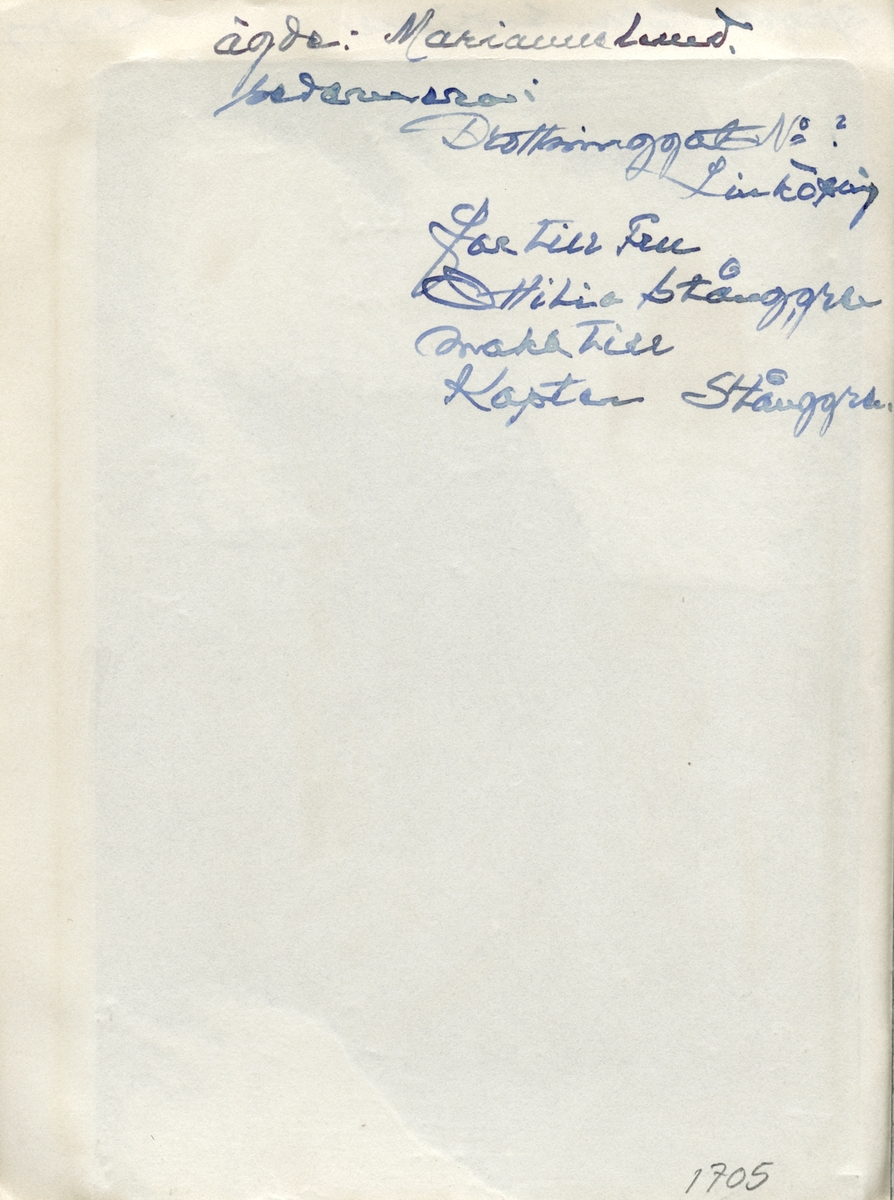 ägde: Mariannelund.
sedermera:
Drottninggat Nº ?
Linköping
Far till Fru
Ottilia Stånggren
maka till
Kapten Stånggren.
1705